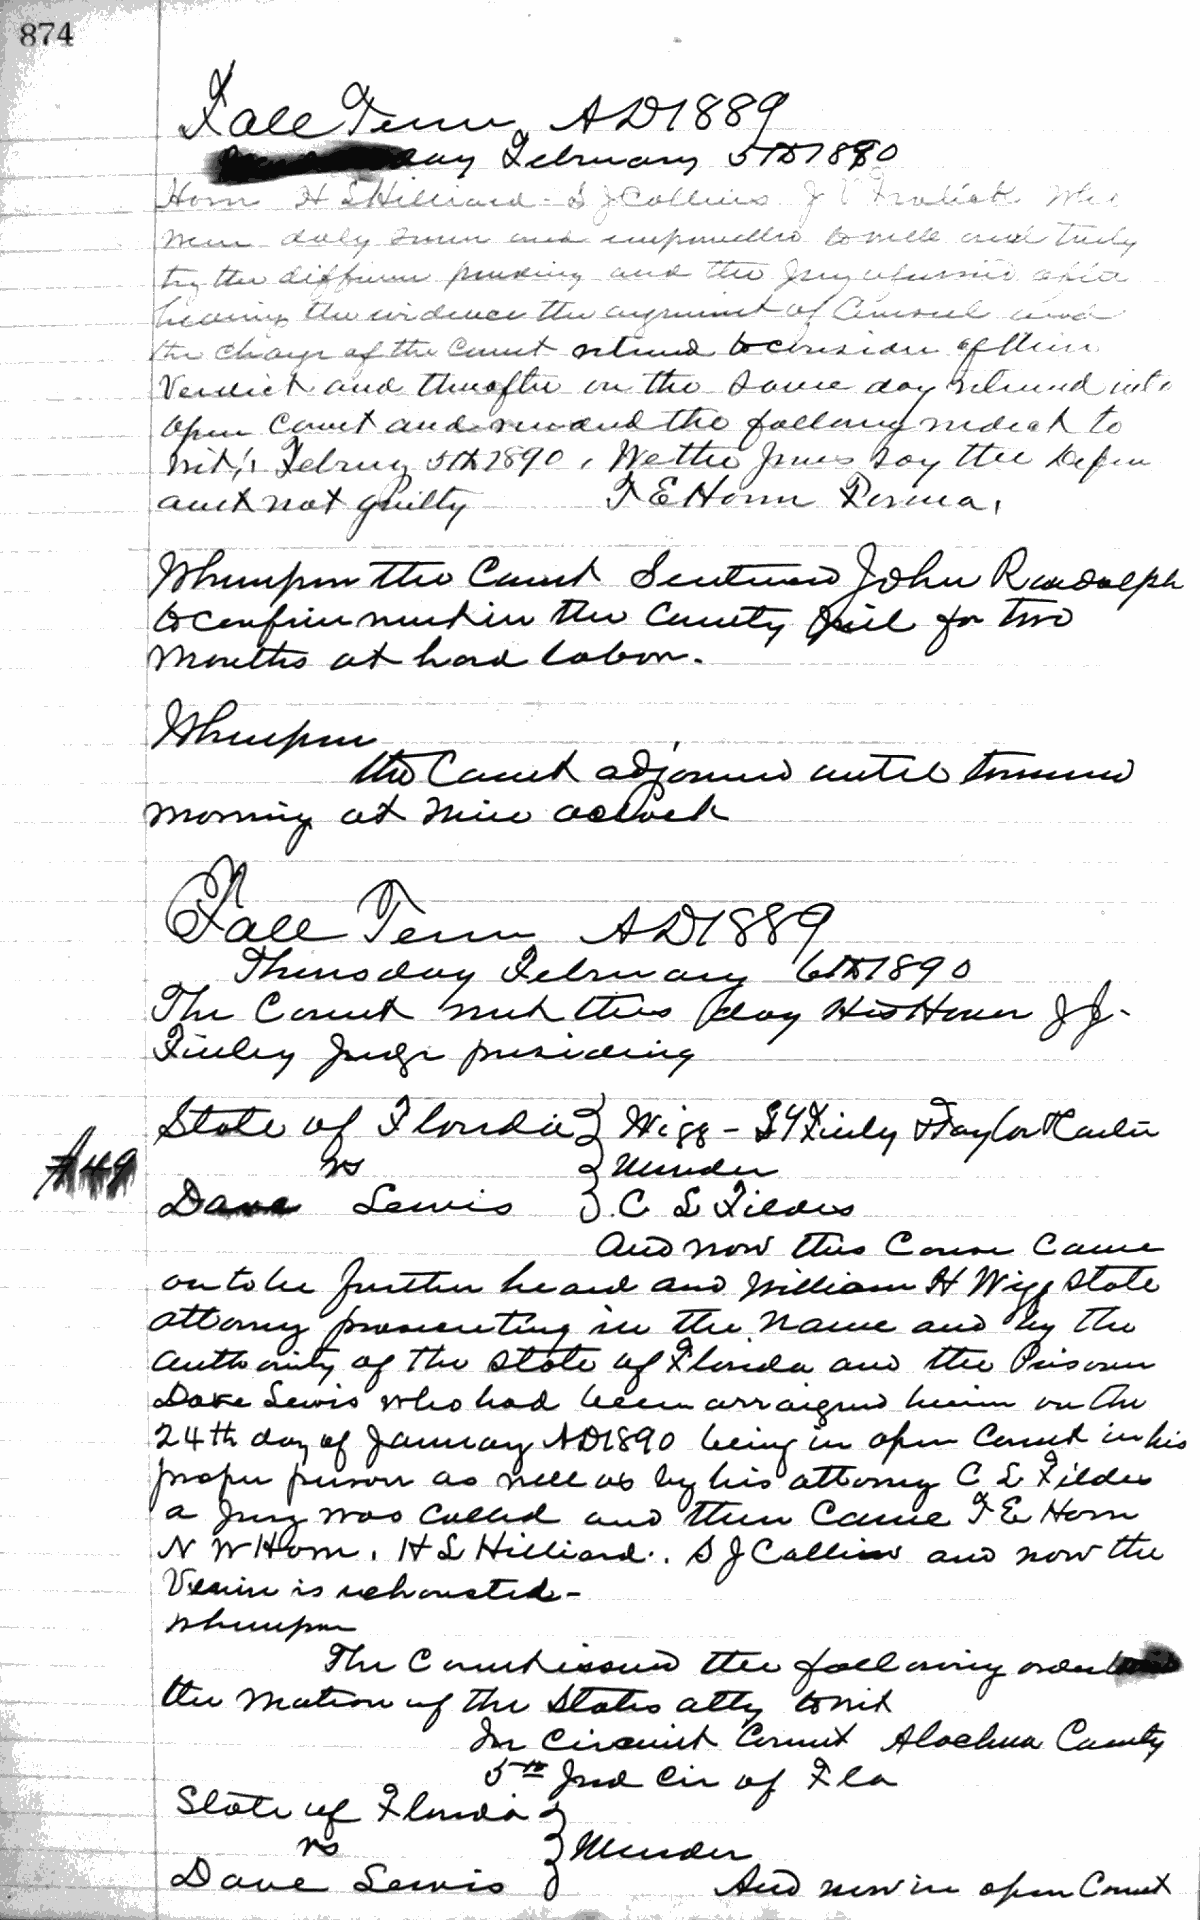 874
Fall Term AD 1889
day February 5th 1890
Horn H L Hilliard - S J Collins J who
were duly sworn and empanelled to well and truly
try the pending and the Jury after
hearing the evidence the argument of Counsel and
the charge of the Court retired to consider of their
Verdict and thereafter on the same day returned into
open Court and rendered the following verdict to
wit; February 5th 1890, We the Jurors say the Defen
dant not guilty F E Horn Forma,
Whereupon the Court Sentenced John Randolph
to confinement in the County Jail for two
Months at hard labor.
Whereupon
the Court adjourned until tomorrow
morning at nine oclock
Fall Term AD 1889
Thursday February 6th 1890
The Court met this day His Honor J J.
Finley Judge presiding
State of Florida } Wigg - S Y Finley & Taylor
A 49
vs } Murder
Dave Lewis } C L Fildes
And now this Cause Came
on to be further heard and William H Wigg State
attorney prosecuting in the name and by the
authority of the State of Florida and the Prisoner
Dave Lewis who had been arraigned herein on the
24th day of January AD 1890 being in open Court in his
proper person as well as by his attorney C L Fildes
a Jury was called and then Came F E Horn
N W Horn, H L Hilliard, S J Collins and now the
Venire is exhausted -
Whereupon
The Court issued the following order
the motion of the States atty to wit
In Circuit Court Alachua County
5th Jud Cir of Fla
State of Florida }
vs } Murder
Dave Lewis } And now in open Court